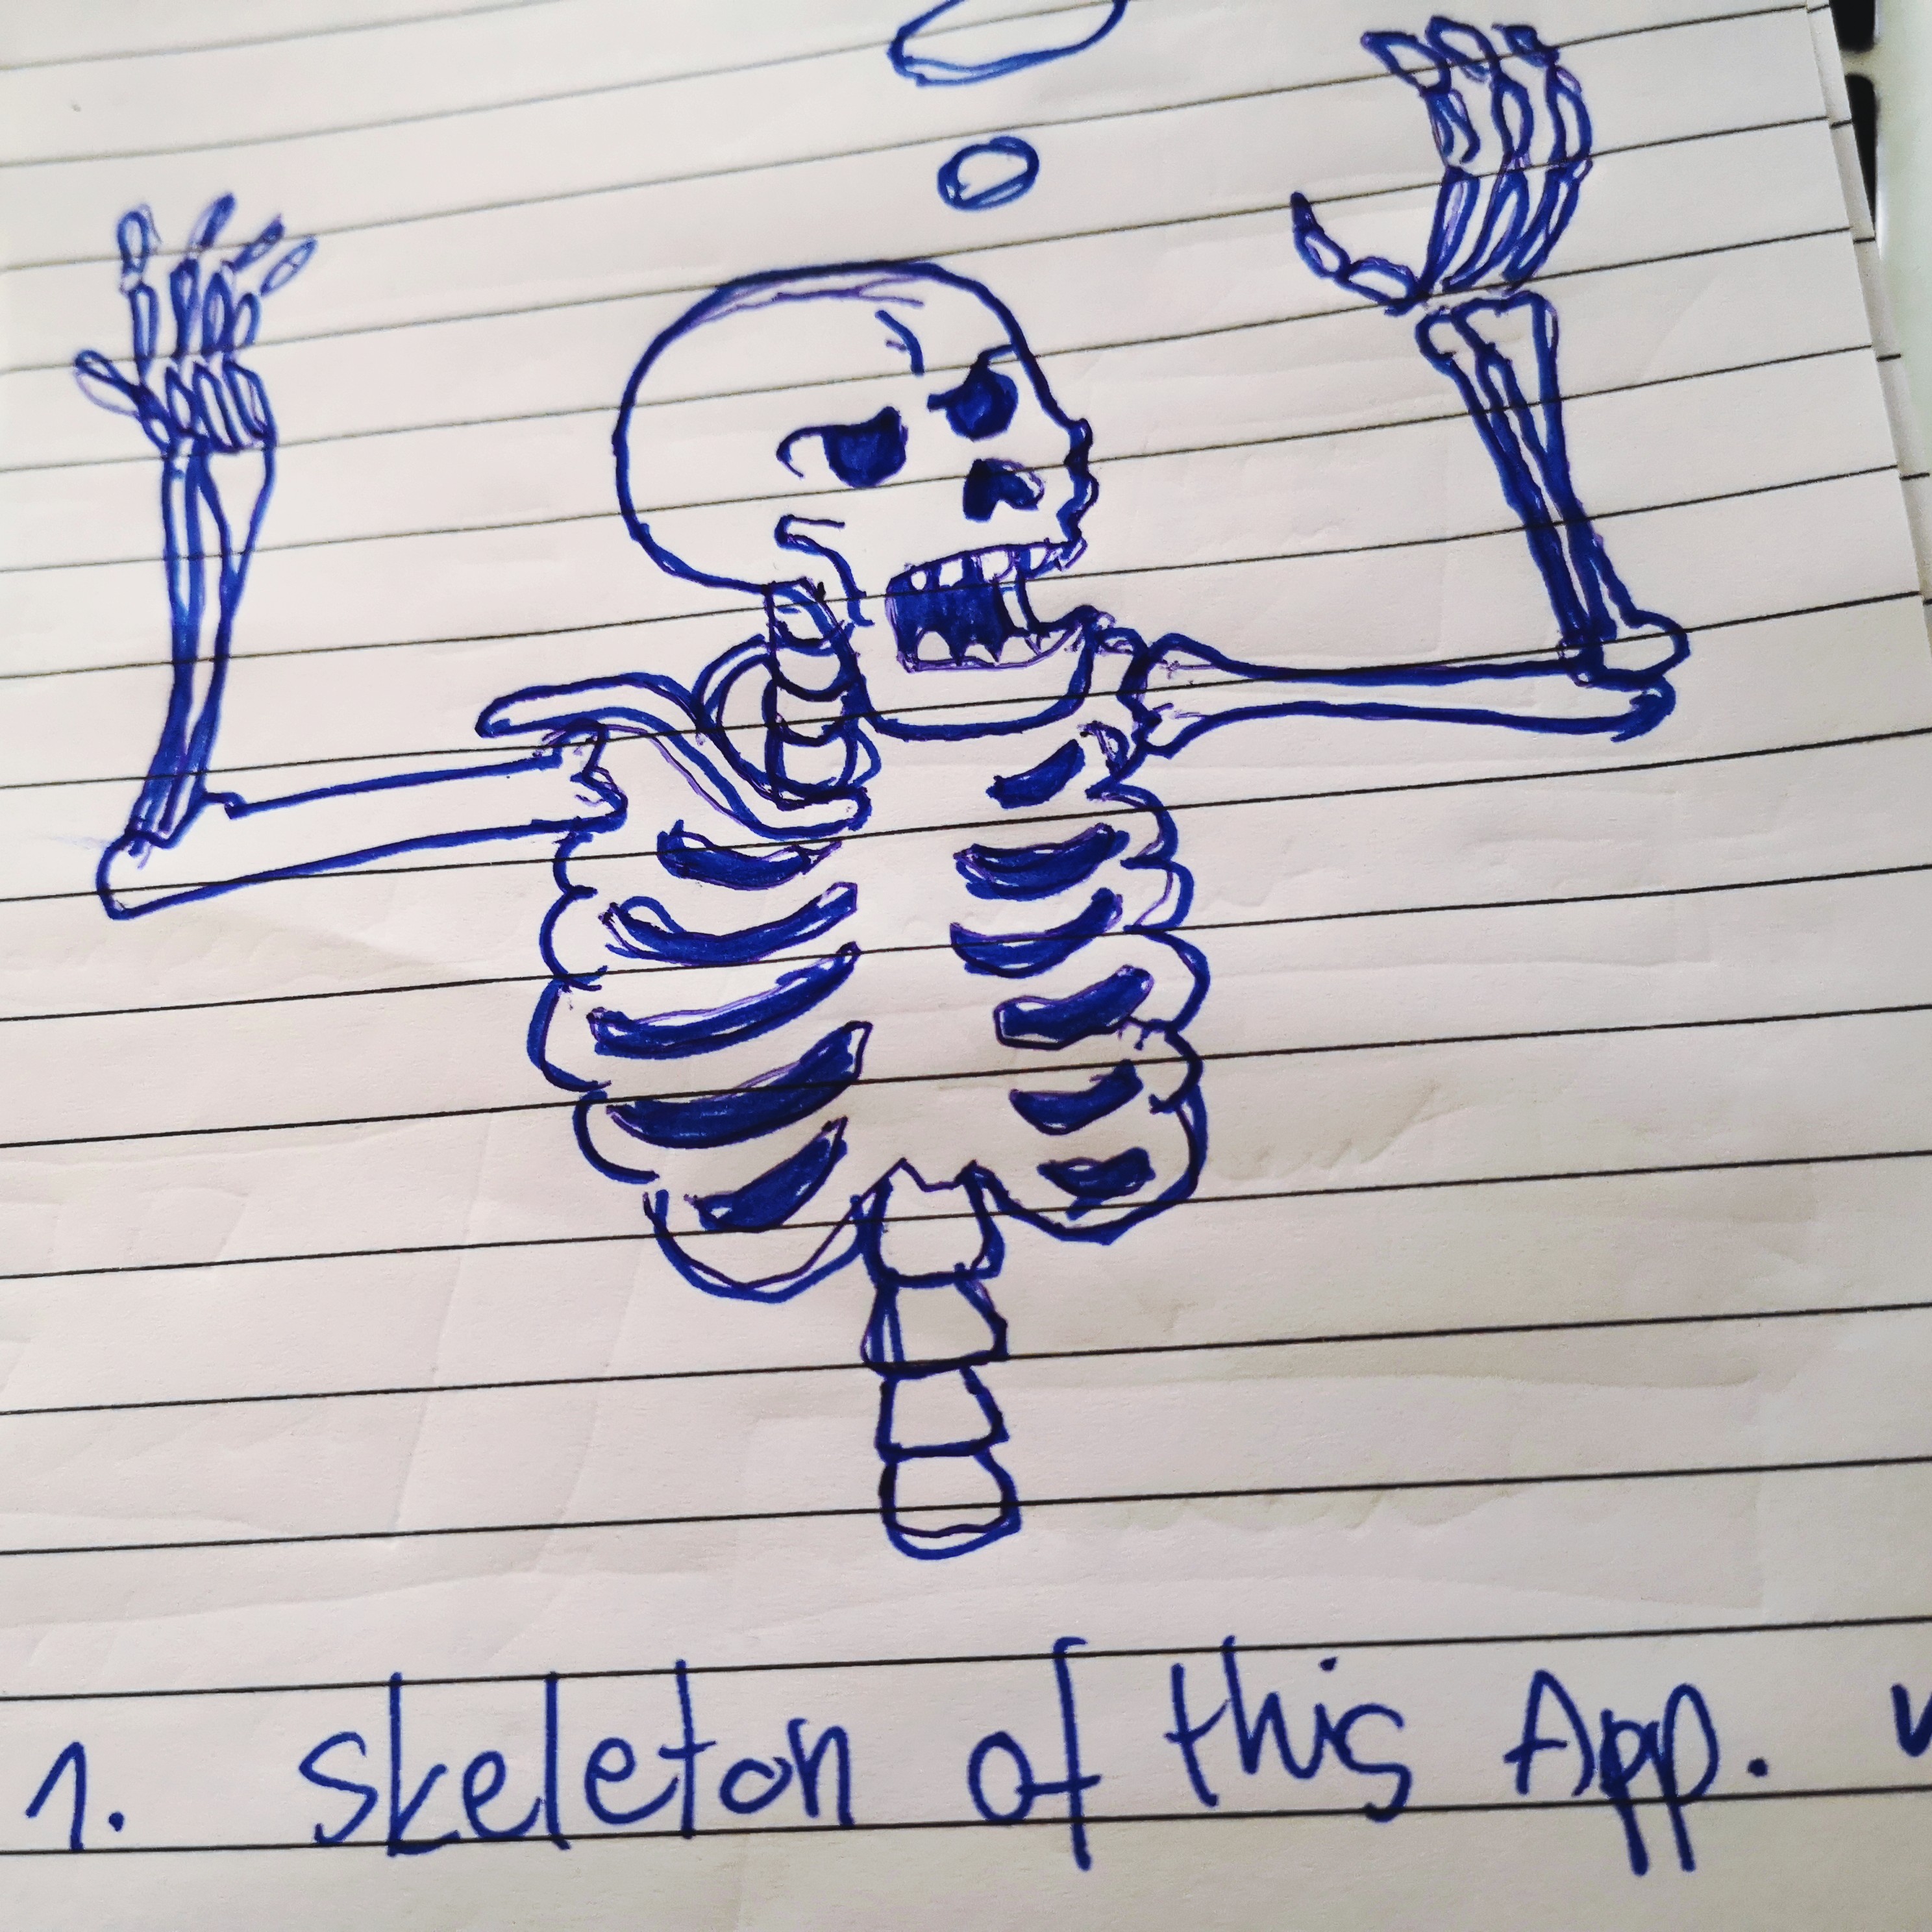 1. Skeleton of this App.